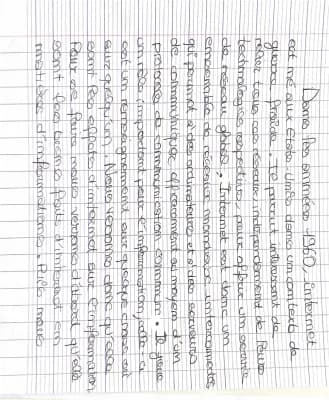 Dans les années 1960, internet
est né aux États Unis dans un contexte de
guerre froide. Te permet initialement de
relier tous ces réseaux indépendamment de leurs
technologies respectives, pour offrir un service
de réseau global. Internet est donc un
ensemble de réseaux mondiaux interconnectés,
qui permet à des ordinateurs et à des serveurs
de communiquer efficacement au moyen d'un
protocole de communication commun. Il joue
un rôle important pour l'information, celle ci
est un renseignement sur quelque chose ou
sur quelqu'un. Nous verrons donc quels
sont les effets d'internet sur l'information
Pour ce faire nous verrons d'abord quels
sont les biens faits d'internet en
matières d'informations. Puis nous